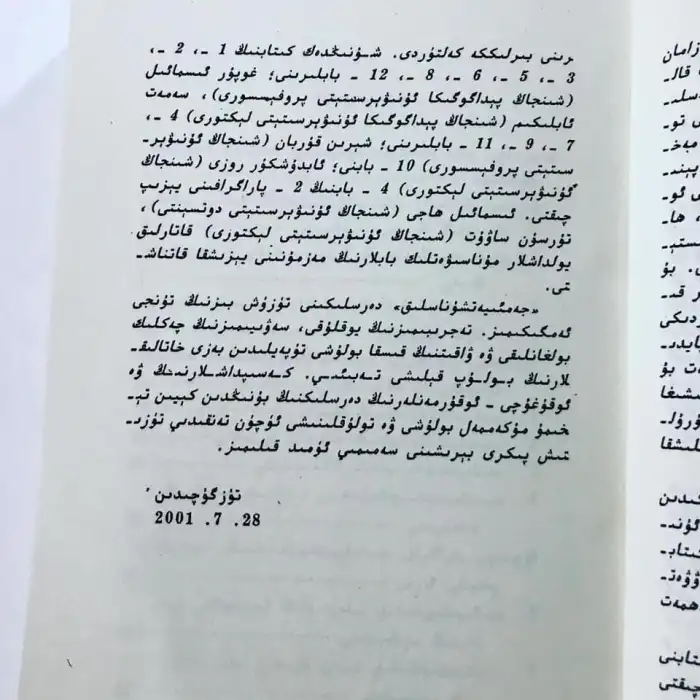 ىرىنى بىرلىككە كەلتۈردى. شۇنىڭدەك كىتابنىڭ 1 -، 2 -،
3 -، 5 -، 6 -، 8 -، 12 - بابلىرىنى؛ غوپۇر ئىسمائىل
(شىنجاڭ پېداگوگىكا ئۇنىۋېرسىتېتى پروفېسسورى)، سەمەت
ئابلىكىم (شىنجاڭ پېداگوگىكا ئۇنىۋېرسىتېتى لېكتورى) 4 -،
7 -، 9 -، 11 - بابلىرىنى؛ شېرىن قۇربان (شىنجاڭ ئۇنىۋېر-
سىتېتى پروفېسسورى) 10 - بابنى؛ ئابدۇشكۈر روزى (شىنجاڭ
ئۇنىۋېرسىتېتى لېكتورى) 4 - بابنىڭ 2 - پاراگرافىنى يېزىپ
چىقتى. ئىسمائىل ھاجى (شىنجاڭ ئۇنىۋېرسىتېتى دوتسېنتى)،
تۇرسۇن ساۋۇت (شىنجاڭ ئۇنىۋېرسىتېتى لېكتورى) قاتارلىق
يولداشلار مۇناسىۋەتلىك بابلارنىڭ مەزمۇنىنى يېزىشقا قاتناش-
تى.
«جەمئىيەتشۇناسلىق» دەرسلىكىنى تۈزۈش بىزنىڭ تۇنجى
ئەمگىكىمىز. تەجرىبىمىزنىڭ يوقلۇقى، سەۋىيىمىزنىڭ چەكلىك
بولغانلىقى ۋە ۋاقىتنىڭ قىسقا بولۇشى تۈپەيلىدىن بەزى خاتالىق-
لارنىڭ بولۇپ قېلىشى تەبىئىي. كەسىپداشلارنىڭ ۋە
ئوقۇغۇچى - ئوقۇرمەنلەرنىڭ دەرسلىكنىڭ بۇنىڭدىن كېيىن تې-
خىمۇ مۇكەممەل بولۇشى ۋە تولۇقلىنىشى ئۈچۈن تەنقىدىي تۈزى-
تىش پىكرى بېرىشىنى سەمىمىي ئۈمىد قىلىمىز.
تۈزگۈچىدىن
2001 .7 .28